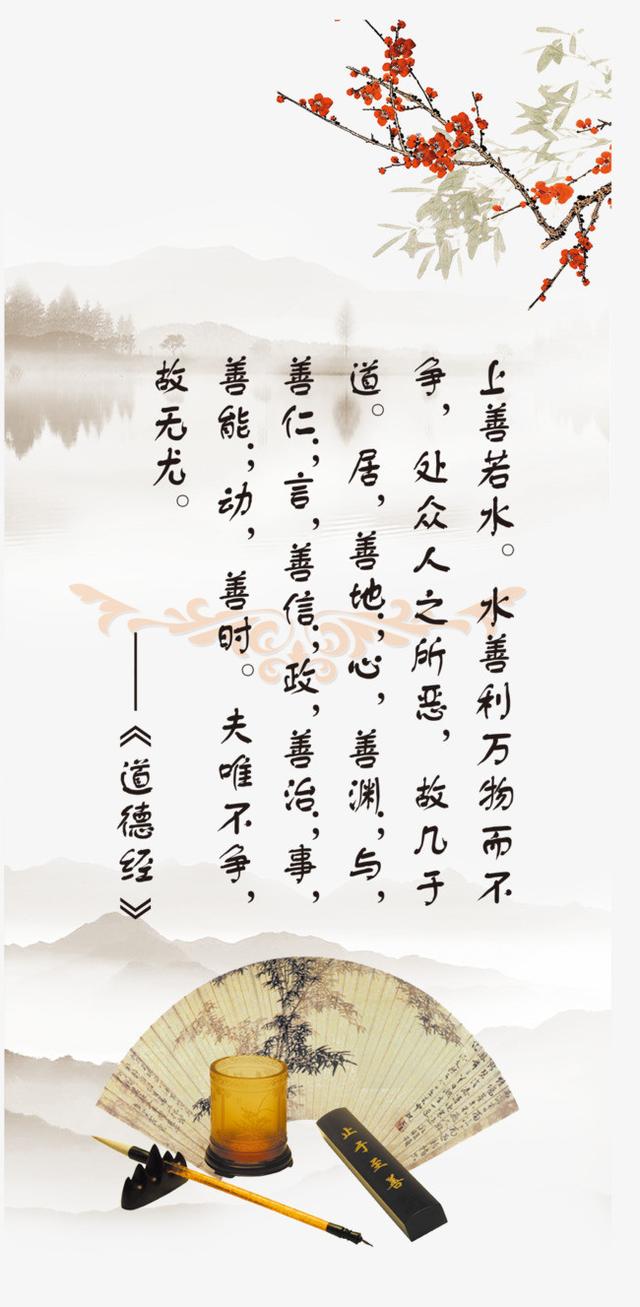 上善若水。水善利万物而不
争，处众人之所恶，故几于
道。居，善地；心，善渊；与，
善仁；言，善信；政，善治；事，
善能；动，善时。夫唯不争，
故无尤。
——《道德经》
止于至善